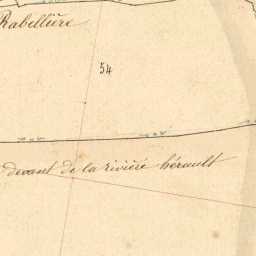 Rabellière
54
devant de la rivière hérault